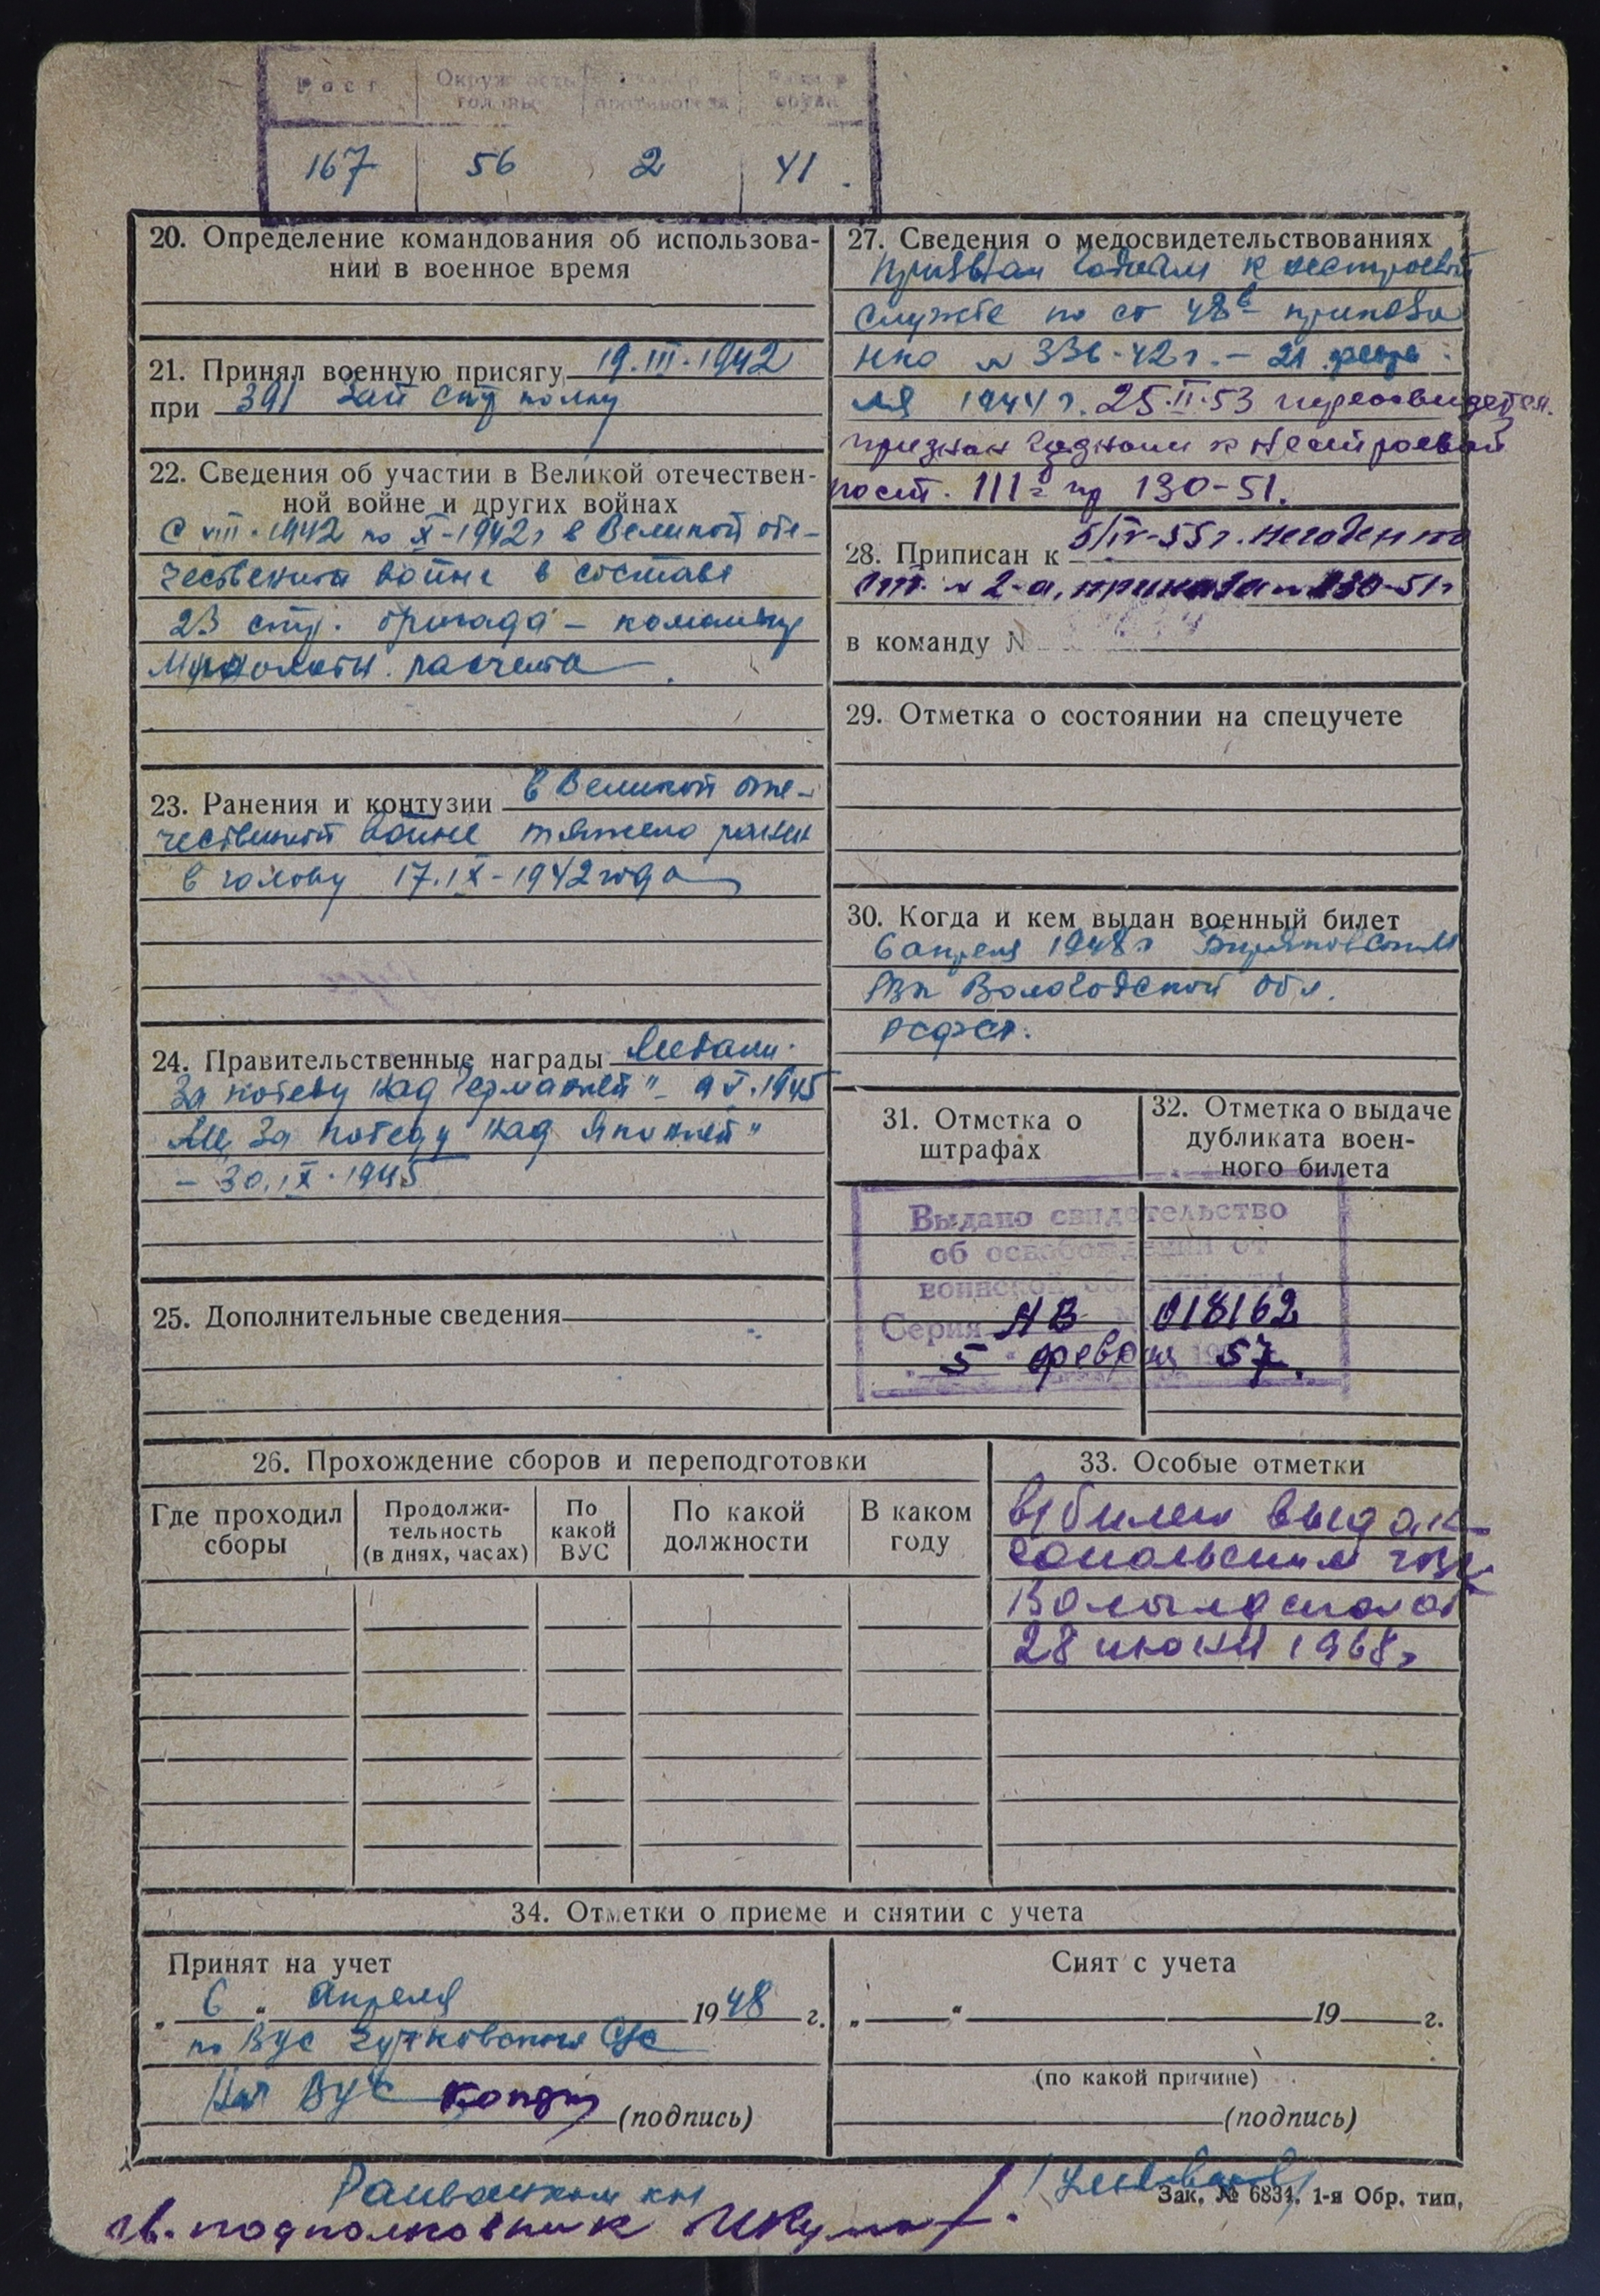 Рост Окружность головы противогаза обуви
167 56 2 41
20. Определение командования об использова-
нии в военное время
21. Принял военную присягу 19.III.1942
при 391 Зап стр полку
22. Сведения об участии в Великой отечествен-
ной войне и других войнах
С VIII-1942 по X-1942г в Великой оте-
чественной войне в составе
23 стр. бригада – команд
расчета
23. Ранения и контузии в Великой оте-
чественной войне тяжело ранен
в голову 17.IX-1942 года
24. Правительственные награды Медали
За победу над Германией" – 9 V.1945
М „За победу над Японией"
– 30.IX.1945
25. Дополнительные сведения
27. Сведения о медосвидетельствованиях
Признан годным к нестроевой
службе по ст 48в приказа
НКО № 336-42г. – 21 февра
ля 1944г. 25.II.53 переосвидетел.
признан годным к нестроевой
по ст. III пр 130-51.
28. Приписан к 5/IV-55г. негоден по
ст. № 2-а, приказа № 130-51г
в команду №
29. Отметка о состоянии на спецучете
30. Когда и кем выдан военный билет
6 апреля 1948г Биряковским
РВК Вологодской обл.
РСФСР.
31. Отметка о
штрафах
32. Отметка о выдаче
дубликата воен-
ного билета
Выдано свидетельство
об освобождении от
воинской обязанности
Серия НВ № 018162
5 " февраля 1957.
26. Прохождение сборов и переподготовки
Где проходил
сборы
Продолжи-
тельность
(в днях, часах)
По
какой
ВУС
По какой
должности
В каком
году
33. Особые отметки
в/билет выдан
Сокольским ГВК
Вологодской об
28 июня 1968г
34. Отметки о приеме и снятии с учета
Принят на учет
„ 6 " Апреля 1948 г.
по ВУС Чучковского С/с
Нач ВУС (подпись)
Снят с учета
„ " 19 г.
(по какой причине)
(подпись)
Райвоенком
гв. подполковник
Зак. № 6834. 1-я Обр. тип.